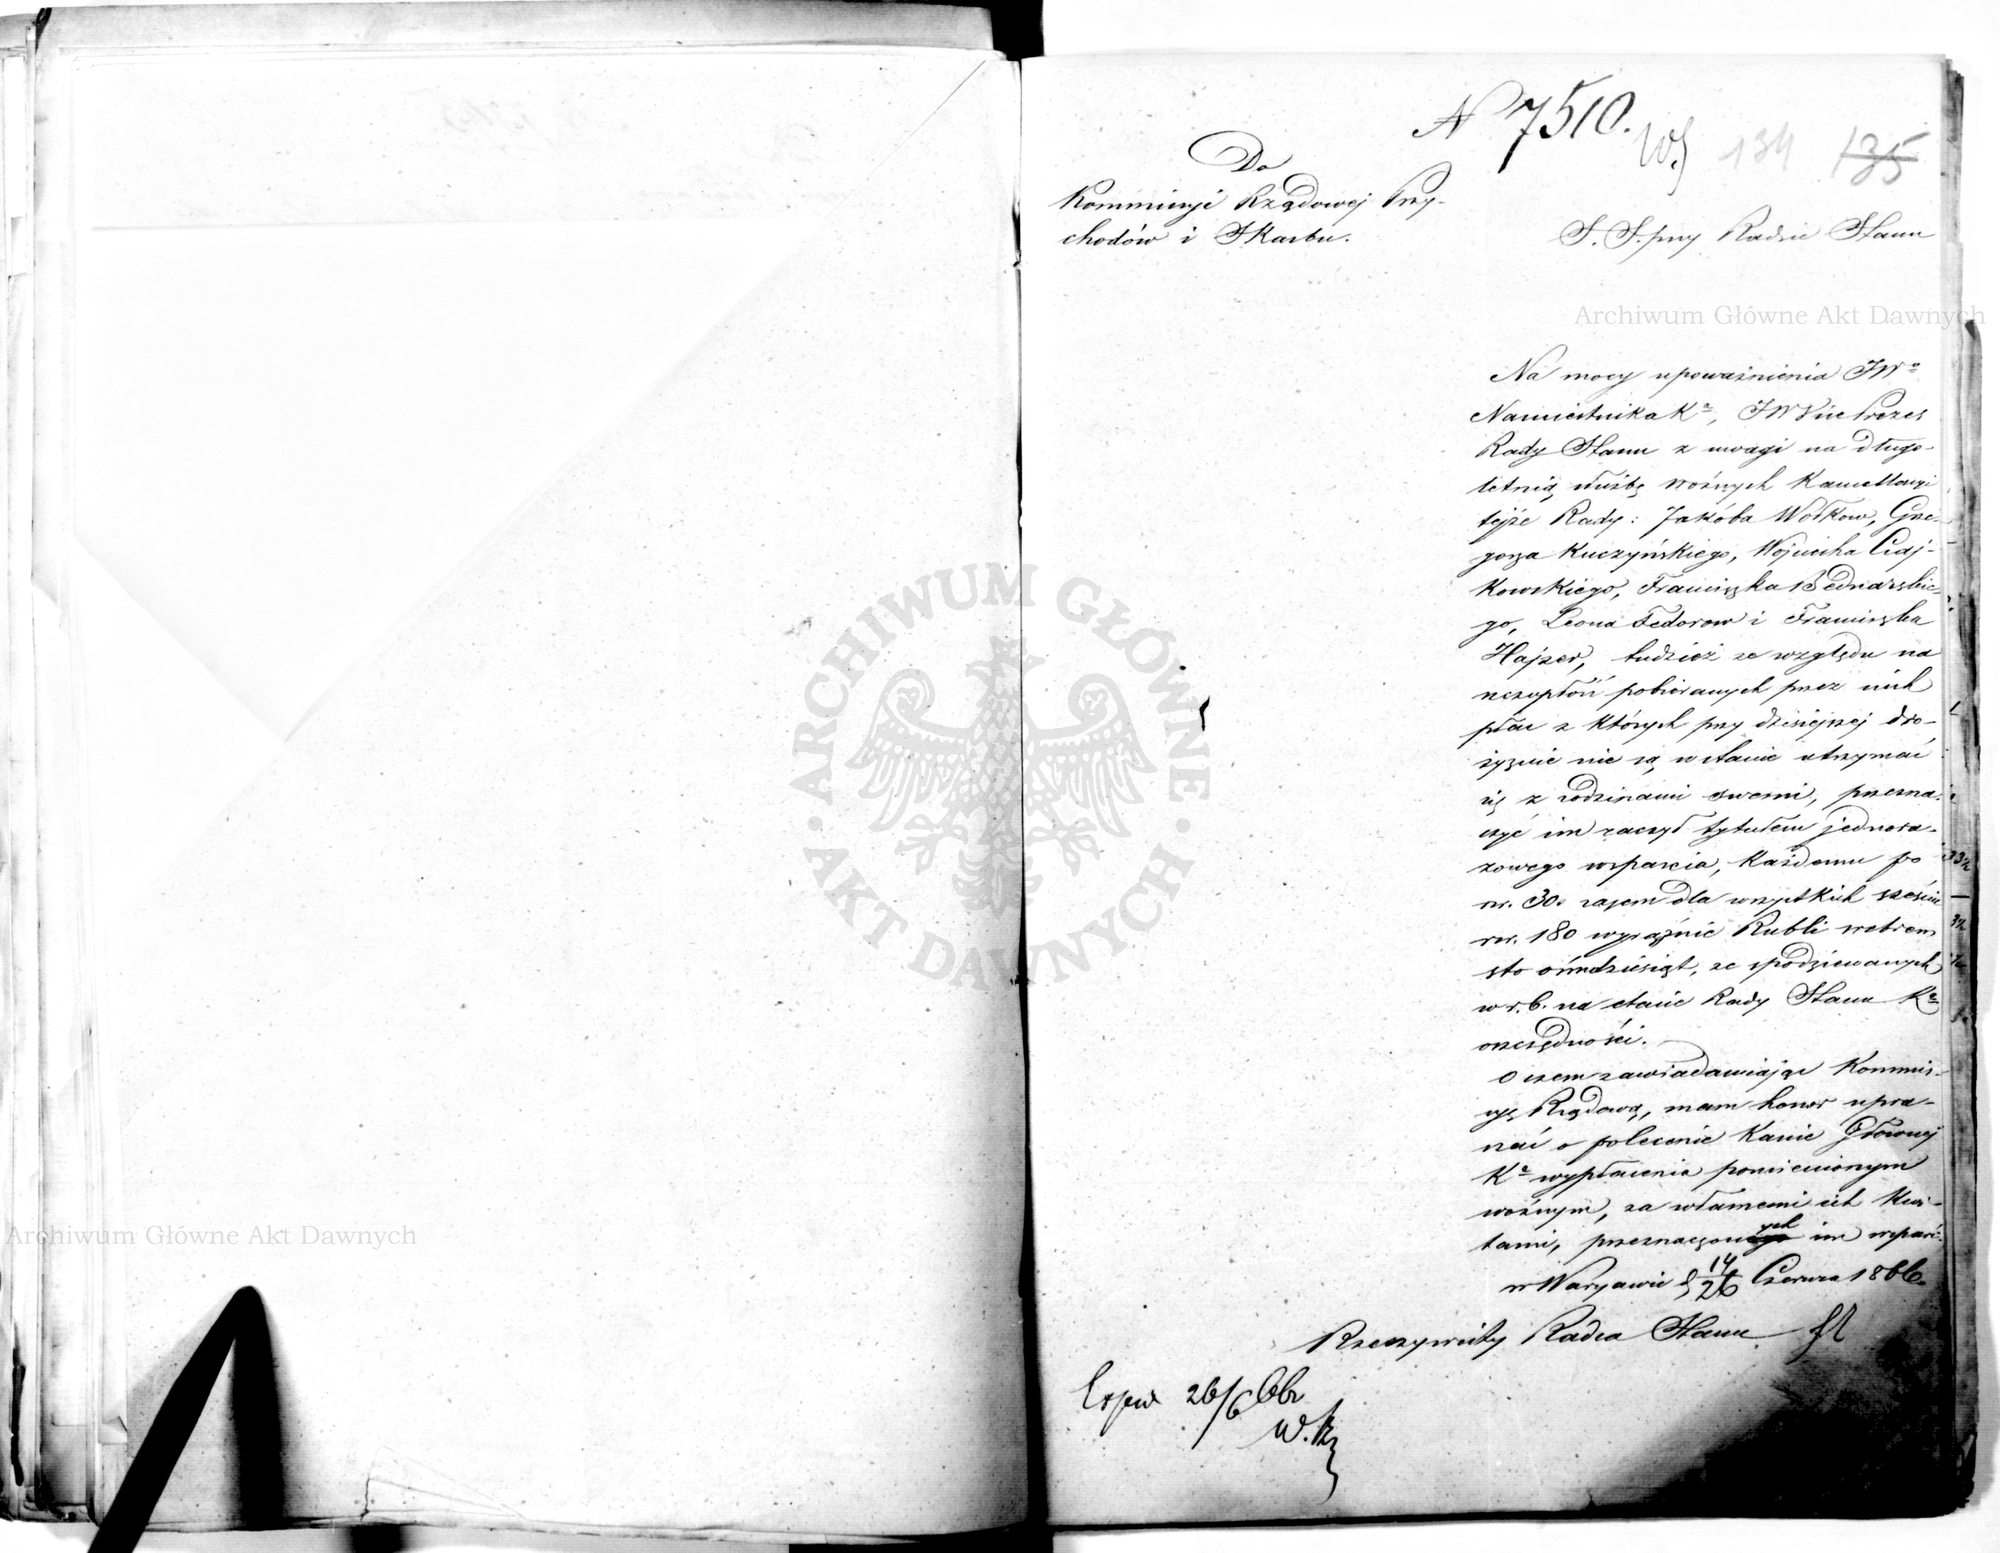 N 7510.
134 135
Do
Kommissyi Rządowej Przy-
chodów i Skarbu.
S. S. przy Radzie Stanu
Archiwum Główne Akt Dawnych
Na mocy upoważnienia JWo
Namiestnika Ka, JW Vice Prezes
Rady Stanu z uwagi na długo-
letnią służbę woźnych Kancellaryi
tejże Rady: Jakóba Wołkow, Grze-
gorza Kuczyńskiego, Wojciecha Czaj-
kowskiego, Franciszka Bednarskie-
go, Leona Fedorow i Franciszka
Hajzer, tudzież ze względu na
szczupłość pobieranych przez nich
płac z których przy dzisiejszej dro-
żyznie nie są w stanie utrzymać
się z rodzinami swemi, przezna-
czyć im raczył tytułem jednora-
zowego wsparcia, każdemu po
rsr. 30. razem dla wszystkich sześciu
rsr. 180 wyraźnie Rubli srebrem
sto ośmdziesiąt, ze spodziewanych
w r. b. na etacie Rady Stanu Ka
oszczędności.
O czem zawiadamiając Kommis-
syę Rządową, mam honor upra-
szać o polecenie Kassie Głównej
Ka wypłacenia pomienionym
woźnym, za własnemi ich kwi-
tami, przeznaczonych im wsparć.
w Warszawie d 14/26 Czerwca 1866.
Rzeczywisty Radca Stanu
26/6 66r
ARCHIWUM GŁÓWNE AKT DAWNYCH
Archiwum Główne Akt Dawnych